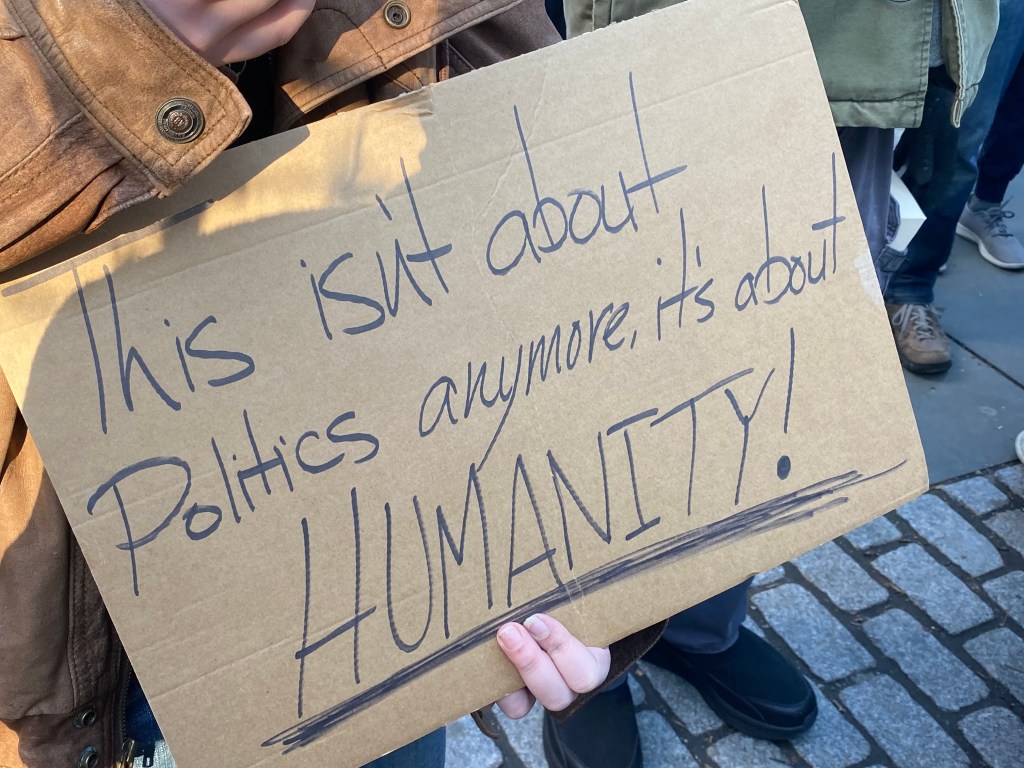 This isn't about
Politics anymore, it's about
HUMANITY!